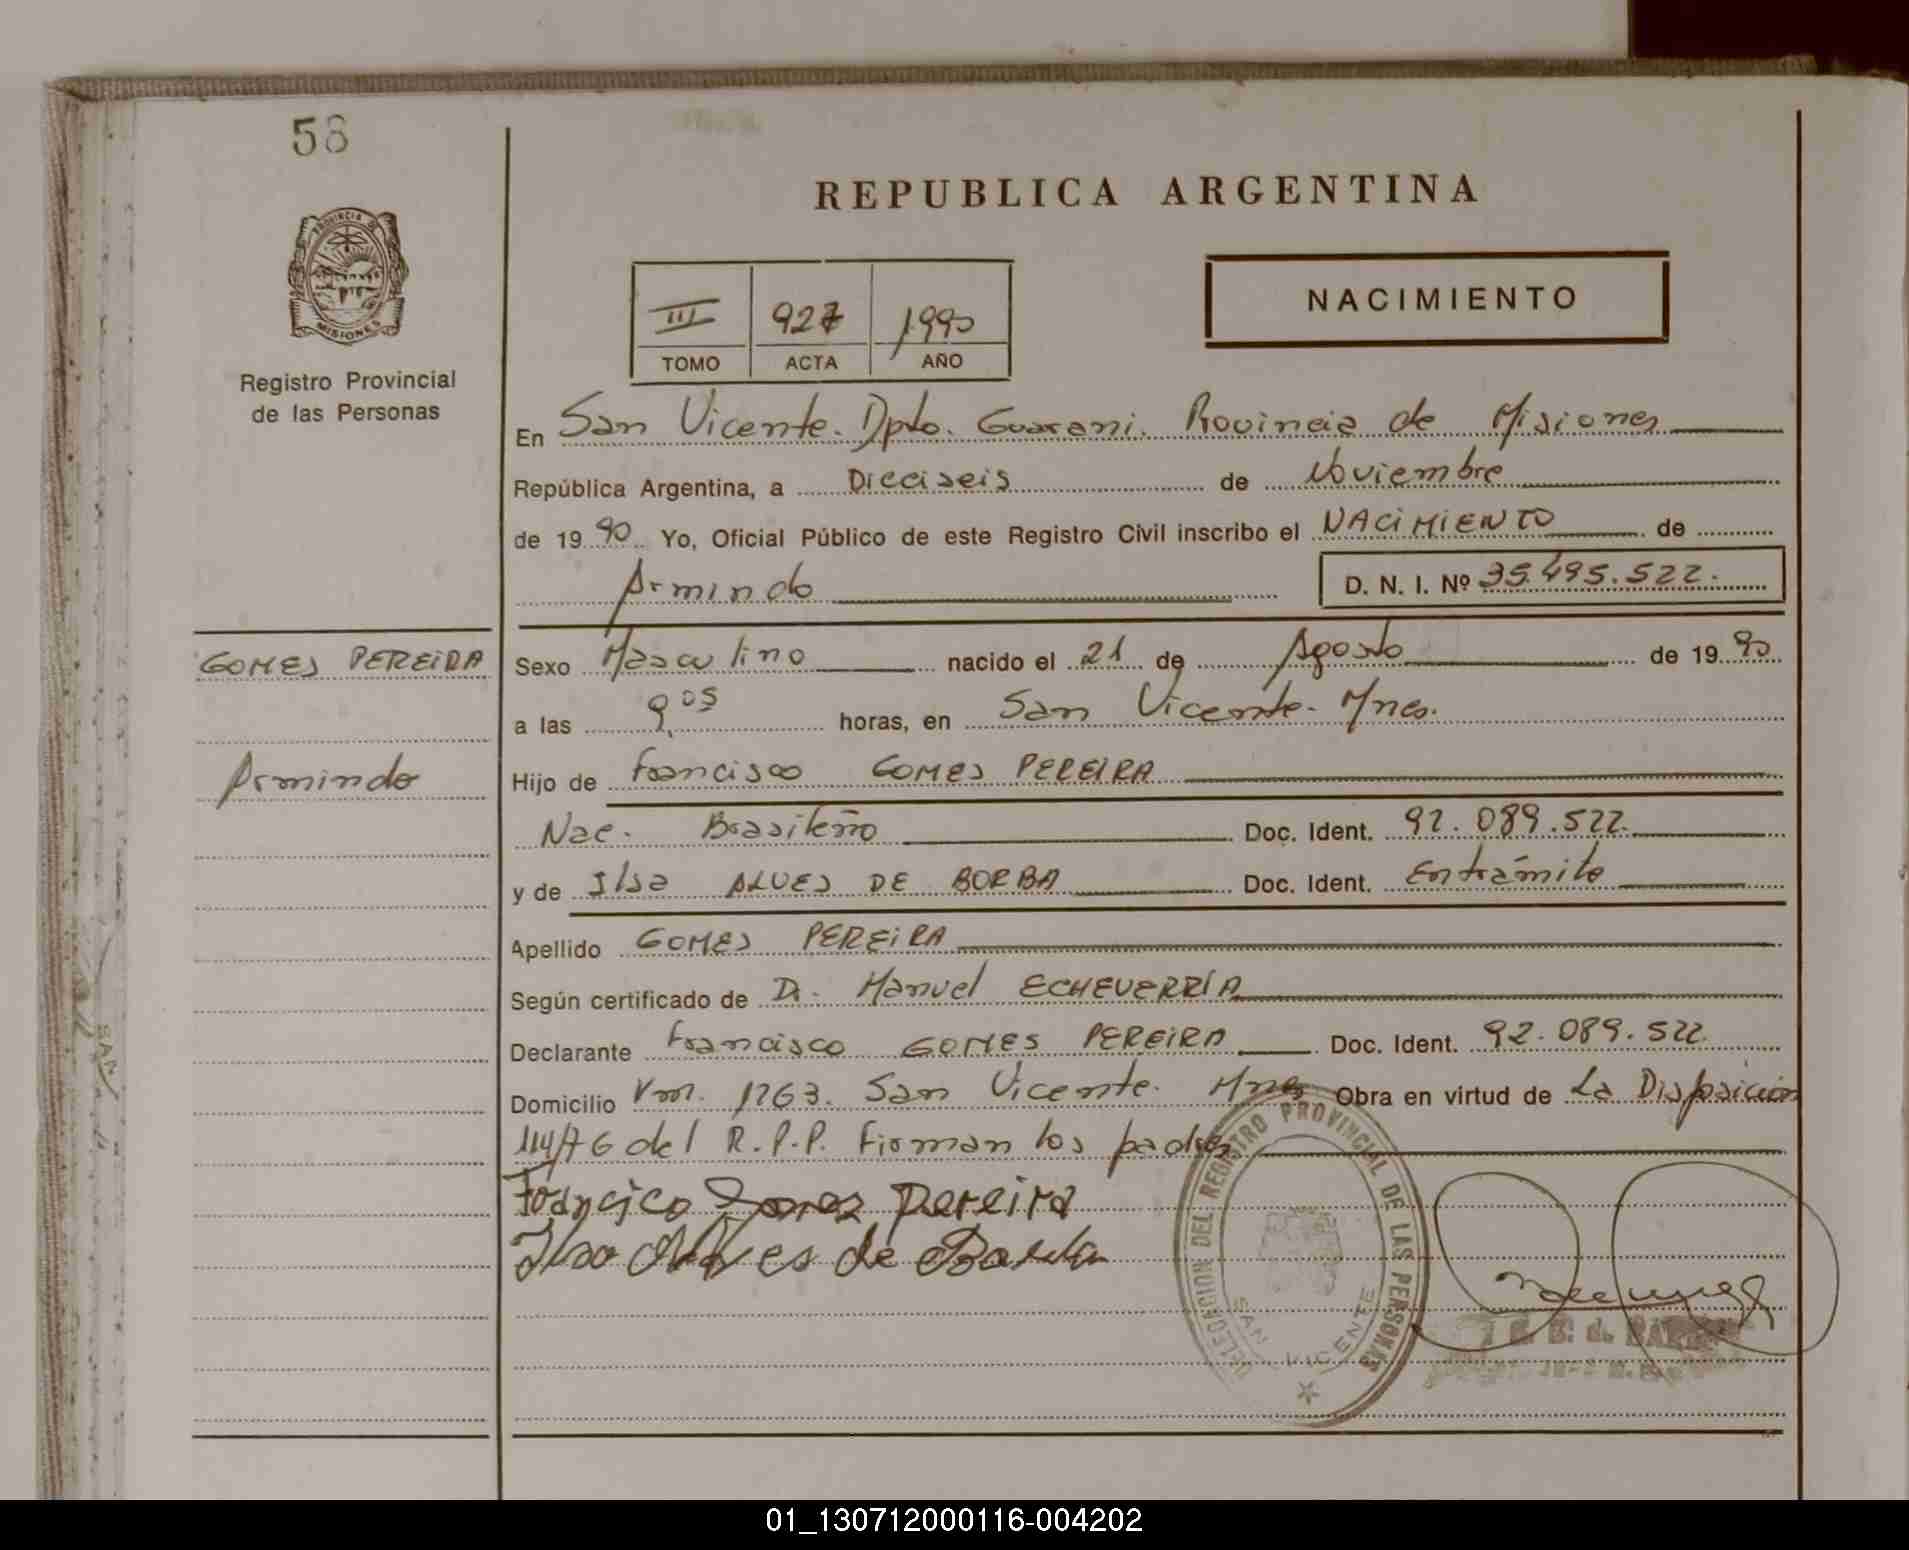 58
REPUBLICA ARGENTINA
PROVINCIA DE
MISIONES
Registro Provincial
de las Personas
III 927 1990
TOMO ACTA AÑO
NACIMIENTO
En San Vicente. Dpto. Guarani. Provincia de Misiones
República Argentina, a Dieciseis de Noviembre
de 1990 Yo, Oficial Público de este Registro Civil inscribo el NACIMIENTO de
Armindo
D. N. I. Nº 35.495.522.
GOMES PEREIRA
Armindo
Sexo Masculino nacido el 21 de Agosto de 1990
a las 9,05 horas, en San Vicente. Mnes.
Hijo de Francisco GOMES PEREIRA
Nac. Brasileño Doc. Ident. 92.089.522.
y de Ilsa ALVES DE BORBA Doc. Ident. Entrámite
Apellido GOMES PEREIRA
Según certificado de Dr. Manuel ECHEVERRÍA
Declarante Francisco GOMES PEREIRA Doc. Ident. 92.089.522.
Domicilio Km. 1263. San Vicente. Mnes Obra en virtud de La Disposición
114/76 del R.P.P. Firman los padres
Francisco Gomes Pereira
Ilsa Alves de Borba
DELEGACION DEL REGISTRO PROVINCIAL DE LAS PERSONAS
SAN VICENTE
01_130712000116-004202